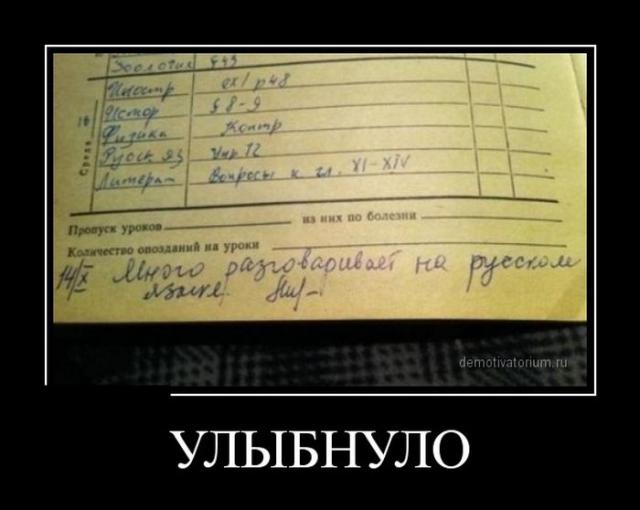 Зоология § 43
Иностр ex 1 p 48
Истор § 8-9
Физика Контр
Русск яз Упр 12
Литерат Вопросы к гл. XI-XIV
16
Среда
Пропуск уроков из них по болезни
Количество опозданий на уроки
14/X Много разговаривает на русском
языке!
demotivatorium.ru
УЛЫБНУЛО